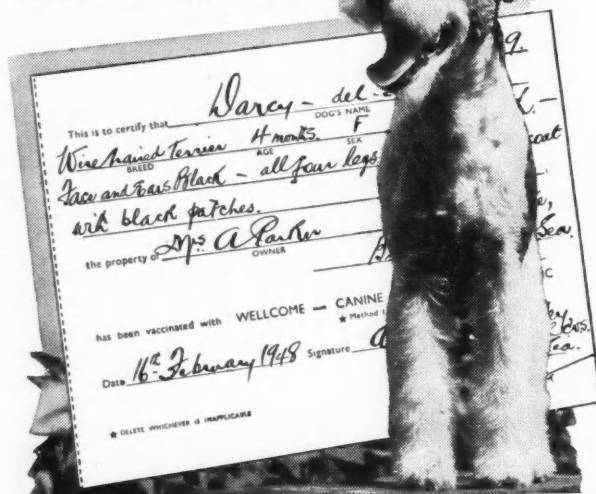 This is to certify that Darcy - del - 9.
DOG'S NAME
Wire haired Terrier 4 months. F
BREED AGE SEX
Face and Ears Black - all four legs coat
with black patches.
the property of Mrs A Parker Sea.
OWNER
has been vaccinated with WELLCOME — CANINE
★ Method
Date 16th February 1948 Signature
★ DELETE WHICHEVER IS INAPPLICABLE